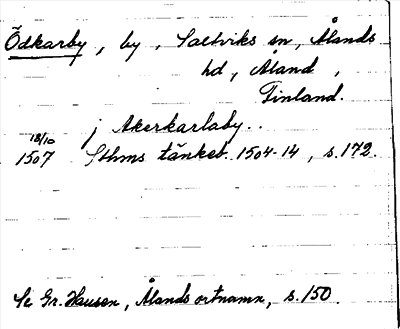 Ödkarby, by, Saltviks sn, Ålands
hd, Åland,
Finland.
j Akerkarlaby..
18/10
1507 Sthms tänkeb. 1504-14, s. 172.
Se Gr. Hausen, Ålands ortnamn, s. 150.